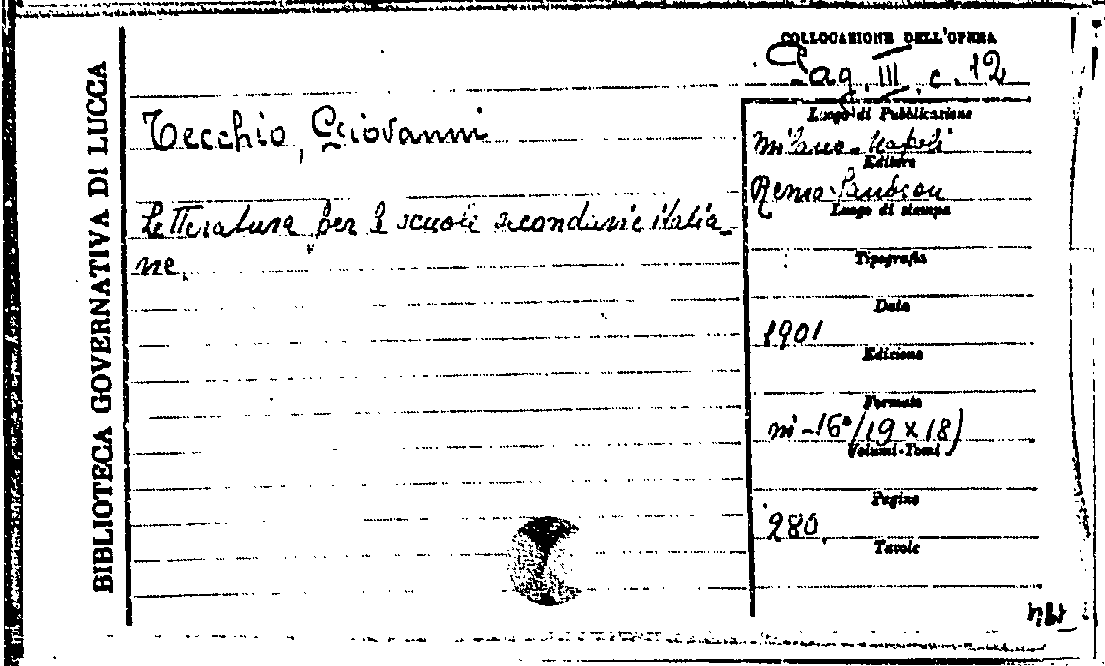 BIBLIOTECA GOVERNATIVA DI LUCCA
COLLOCAZIONE DELL'OPERA
Pag. III. c. 12
Tecchio, Giovanni
Letteratura per le scuole secondarie italia-
ne.
Luogo di Pubblicazione
Milano-Napoli
Editore
Remo Sandron
Luogo di stampa
Tipografia
Data
1901
Edizione
Formato
in-16°(19 x 18)
Volumi-Tomi
Pagine
280.
Tavole